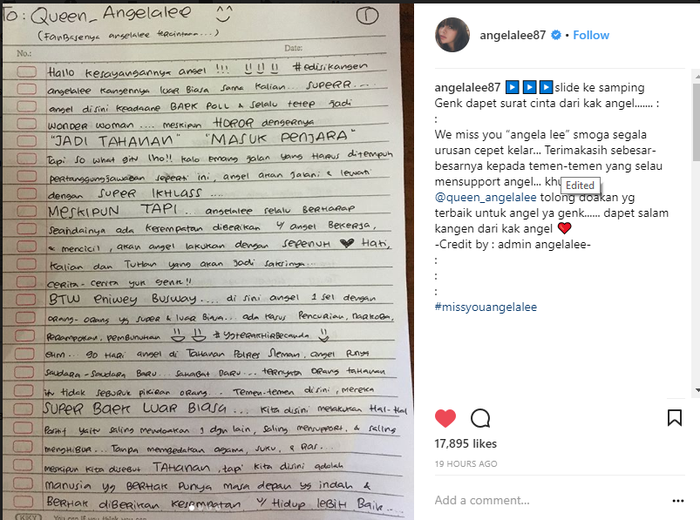 To: Queen_Angelalee
(Fanbasenya angelalee tercintaa....)
1
No.:
Date:
Hallo kesayangannya angel !!! #edisikangen
angelalee kangennya luar Biasa sama kalian... SUPERR....
angel disini keadaane BAEK POLL & selalu tetep jadi
WONDER WOMAN .... meskipun HOROR dengernya
"JADI TAHANAN" "MASUK PENJARA"
Tapi so what gitu lho!! kalo emang jalan yang Harus ditempuh
pertanggungjawaban seperti ini, angel akan jalani & lewati
dengan SUPER IKHLASS ....
MESKIPUN TAPI.. angelalee selalu BerHarap
seandainya ada kesempatan diberikan y angel BeKerja,
& mencicil, akan angel lakukan dengan sepenuh ❤ Hati,
kalian dan Tuhan yang akan jadi saksinya...
cerita-cerita yuk genk!!
BTW eniwey Busway .... di sini angel 1 sel dengan
orang-orang yg super & luar Biasa... ada kasus Pencurian, narkoba,
Perampokan, pembunuhan #ygterakhirbecanda
ehm.. 90 Hari angel di Tahanan Polres Sleman, angel punya
saudara-saudara Baru.. sahabat Baru... ternyata orang tahanan
itu tidak seburuk pikiran orang.. Temen-temen disini, mereka
SUPER Baek LUAR BIASA... kita disini melakukan Hal-Hal
Positif yaitu saling mendoakan 1 dgn lain, saling mensupport, & saling
mengHibur... Tanpa membedakan agama, suku, & Ras...
meskipun kita disebut TAHANAN, tapi kita disini adalah
manusia yg BerHak punya masa depan yg indah &
BerHak diberikan kesempatan y Hidup leBiH Baik....
KIKY You can if you think you can
angelalee87 • Follow
angelalee87 ▶▶▶slide ke samping
Genk dapet surat cinta dari kak angel....... :
:
We miss you "angela lee" smoga segala
urusan cepet kelar... Terimakasih sebesar-
besarnya kepada temen-temen yang selau
mensupport angel...
Edited
@queen_angelalee tolong doakan yg
terbaik untuk angel ya genk...... dapet salam
kangen dari kak angel ❤
-Credit by : admin angelalee-
:
:
:
#missyouangelalee
17,895 likes
19 HOURS AGO
Add a comment...